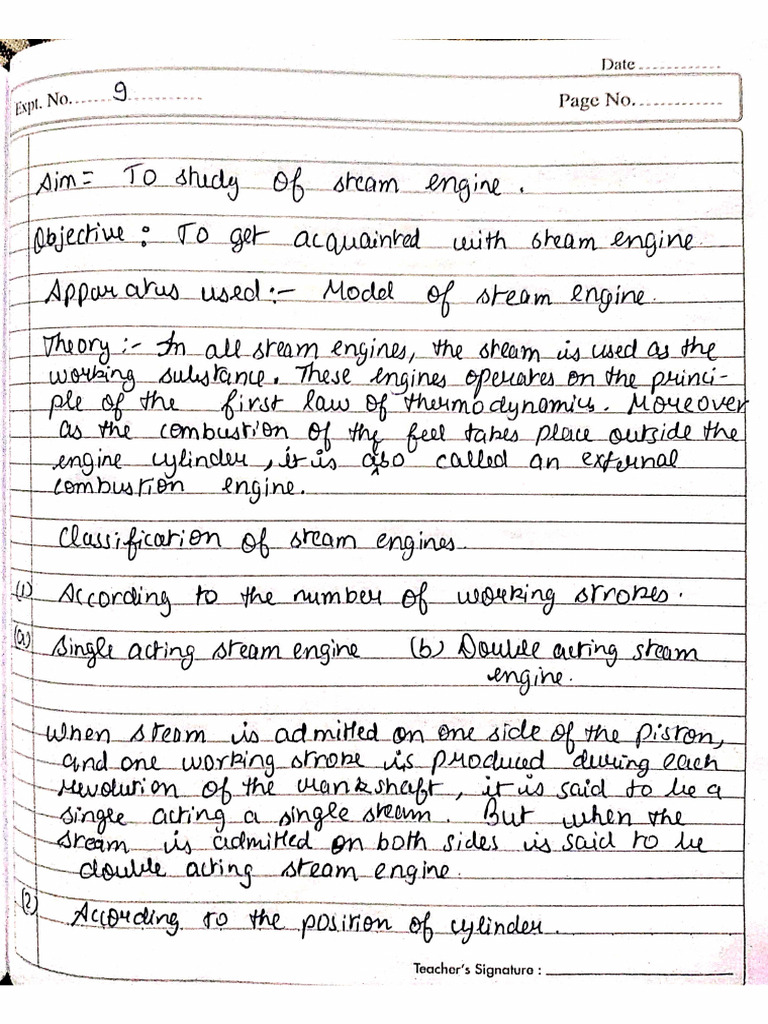 Date ............
Expt. No. ...... 9 ............
Page No. ............
Aim = To study of steam engine.
Objective : To get acquainted with steam engine.
Apparatus used :- Model of steam engine.
Theory :- In all steam engines, the steam is used as the
working substance. These engines operates on the princi-
ple of the first law of thermodynamics. Moreover
as the combustion of the feel takes place outside the
engine cylinder, it is also called an external
combustion engine.
Classification of steam engines.
(1) According to the number of working strokes.
(a) Single acting steam engine (b) Double acting steam
engine.
When steam is admitted on one side of the piston,
and one working stroke is produced during each
revolution of the crankshaft, it is said to be a
single acting a single steam. But when the
steam is admitted on both sides is said to be
double acting steam engine.
(2) According to the position of cylinder.
Teacher's Signature : ____________